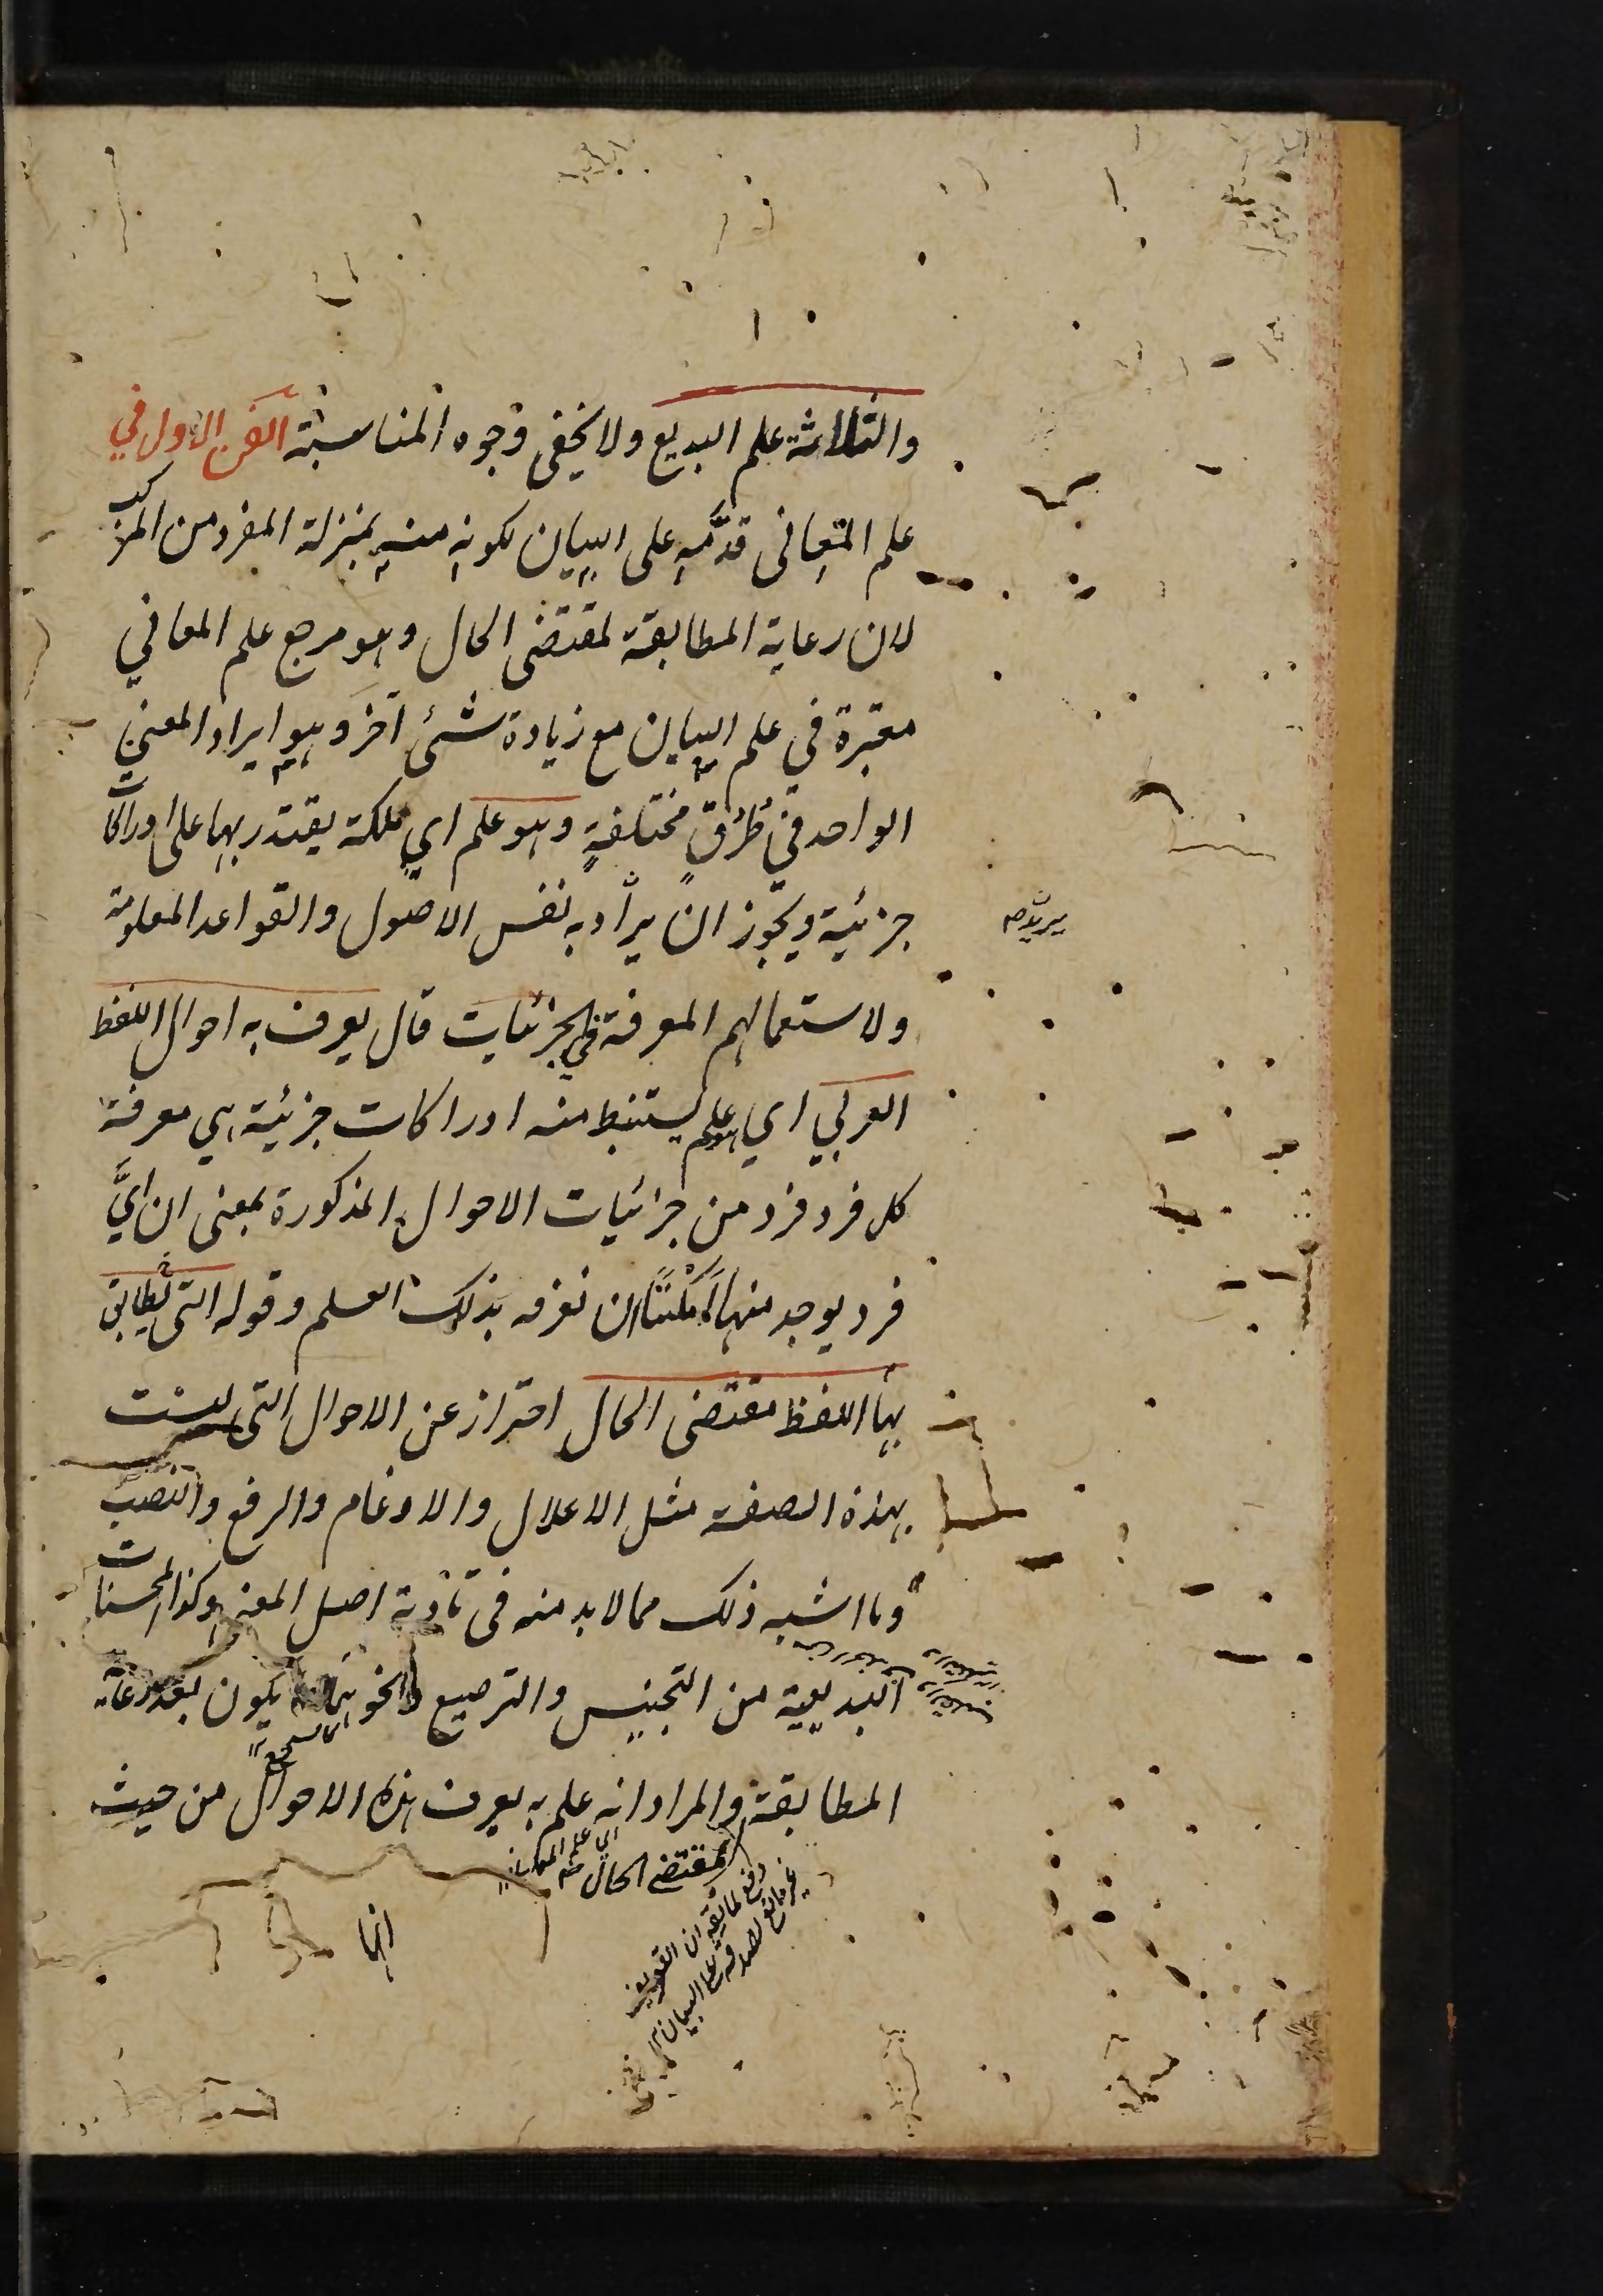 والثلاثة علم البديع ولا يخفى وجوه المناسبة الفن الاول في
علم المعاني قدّمه على البيان لكونه منه بمنزلة المفرد من المركب
لان رعاية المطابقة لمقتضى الحال وهو مرجع علم المعاني
معتبرة في علم البيان مع زيادة شئ آخر وهو ايراد المعنى
الواحد في طُرُقٍ مختلفةٍ وهو علم اي ملكة يقتدر بها على ادراكات
جزئية ويجوز ان يراد به نفس الاصول والقواعد المعلومة
ولاستعمالهم المعرفة في الجزئيات قال يعرف به احوال اللفظ
العربي اي هو علم يستنبط منه ادراكات جزئية هي معرفة
كل فرد فرد من جزئيات الاحوال المذكورة بمعنى ان ايَّ
فرد يوجد منها امكننا ان نعرفه بذلك العلم وقوله التى يطابق
بها اللفظ مقتضى الحال احتراز عن الاحوال التى ليست
بهذه الصفة مثل الاعلال والادغام والرفع والنصب
وما اشبه ذلك مما لا بد منه فى تأدية اصل المعنى وكذا المحسنات
البديعية من التجنيس والترصيع ونحوهما مما يكون بعد رعاية
المطابقة والمراد انه علم به يعرف هذه الاحوال من حيث
اي علم المعانى
لمقتضى الحال
دفع لما يقه ان التعريف
غير مانع لصدقه على البيان
انها